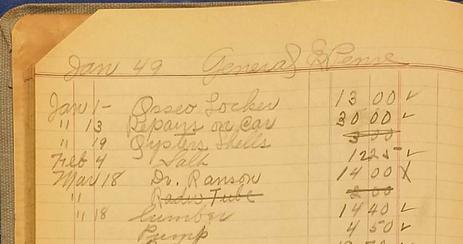 Jan 49 General Expense
Jan 1- Osseo Locker 13 00 ✓
" 13 Repairs on Car 30 00 ✓
" 19 Oysters Shells 3 00
Feb 4 Salt 12 25 ✓
Mar 18 Dr. Ranson 14 00 X
" Radio Tube 2 00
" 18 Lumber 14 40 ✓
Pump 4 50 ✓